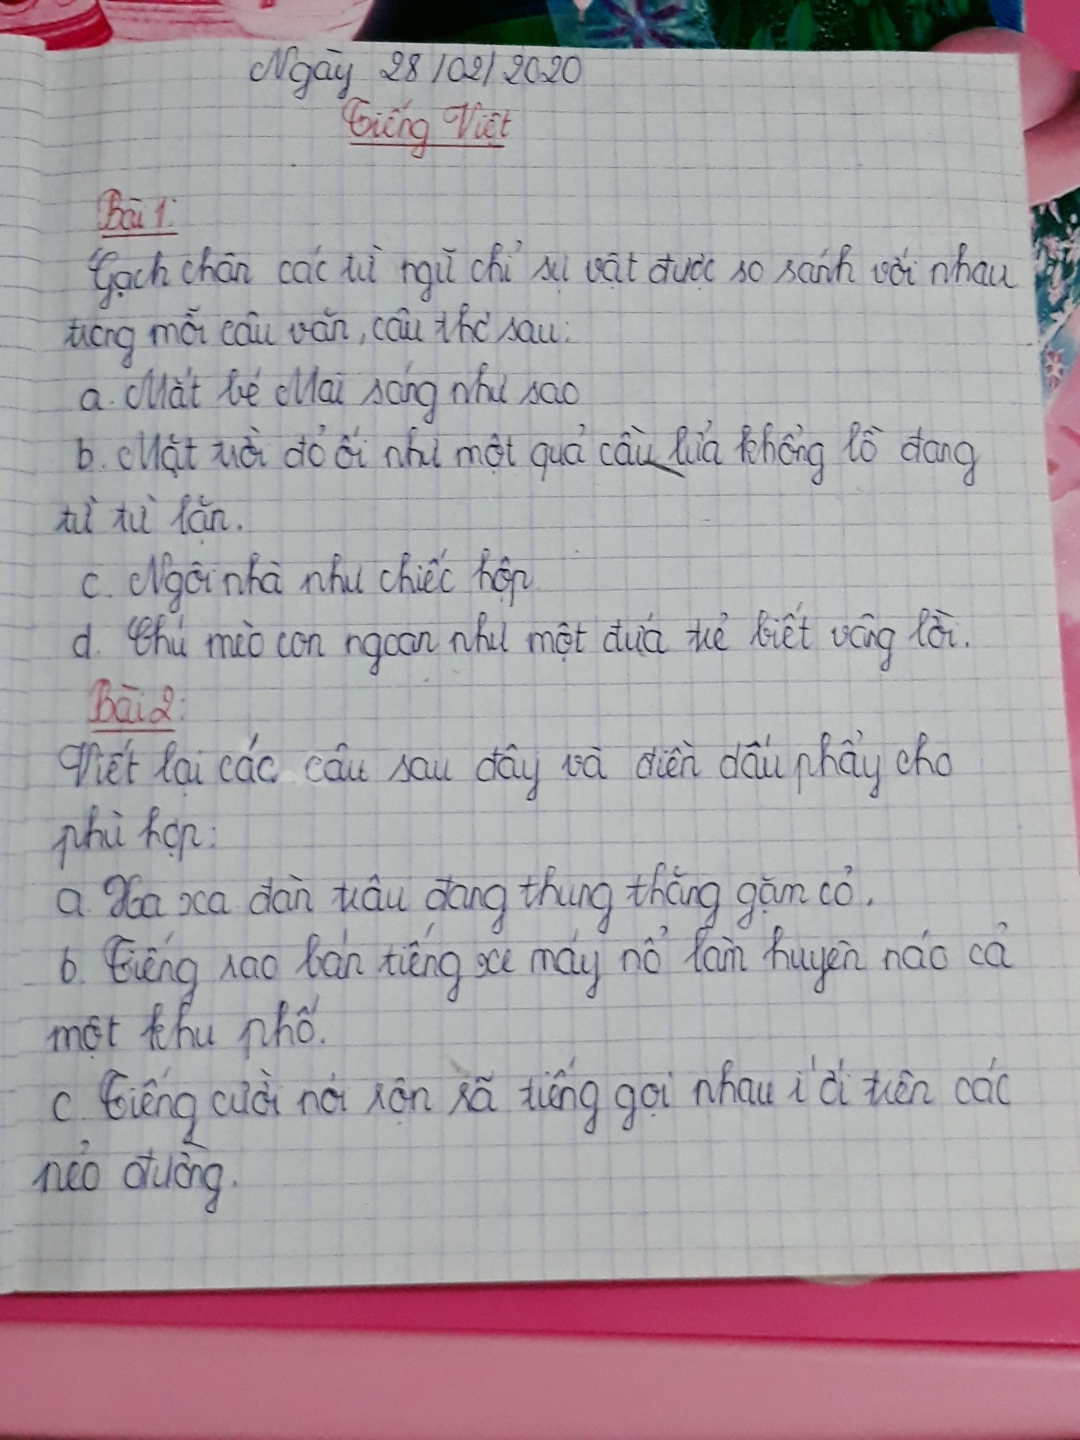 Ngày 28/02/2020
Tiếng Việt
Bài 1:
Gạch chân các từ ngữ chỉ sự vật được so sánh với nhau
trong mỗi câu văn, câu thơ sau:
a. Mắt bé Mai sáng như sao
b. Mặt trời đỏ ối như một quả cầu lửa khổng lồ đang
từ từ lặn.
c. Ngôi nhà như chiếc hộp
d. Chú mèo con ngoan như một đứa trẻ biết vâng lời.
Bài 2:
Viết lại các câu sau đây và điền dấu phẩy cho
phù hợp:
a. Xa xa đàn trâu đang thung thăng gặm cỏ.
b. Tiếng rao bán tiếng xe máy nổ làm huyên náo cả
một khu phố.
c. Tiếng cười nói rộn rã tiếng gọi nhau í ới trên các
nẻo đường.